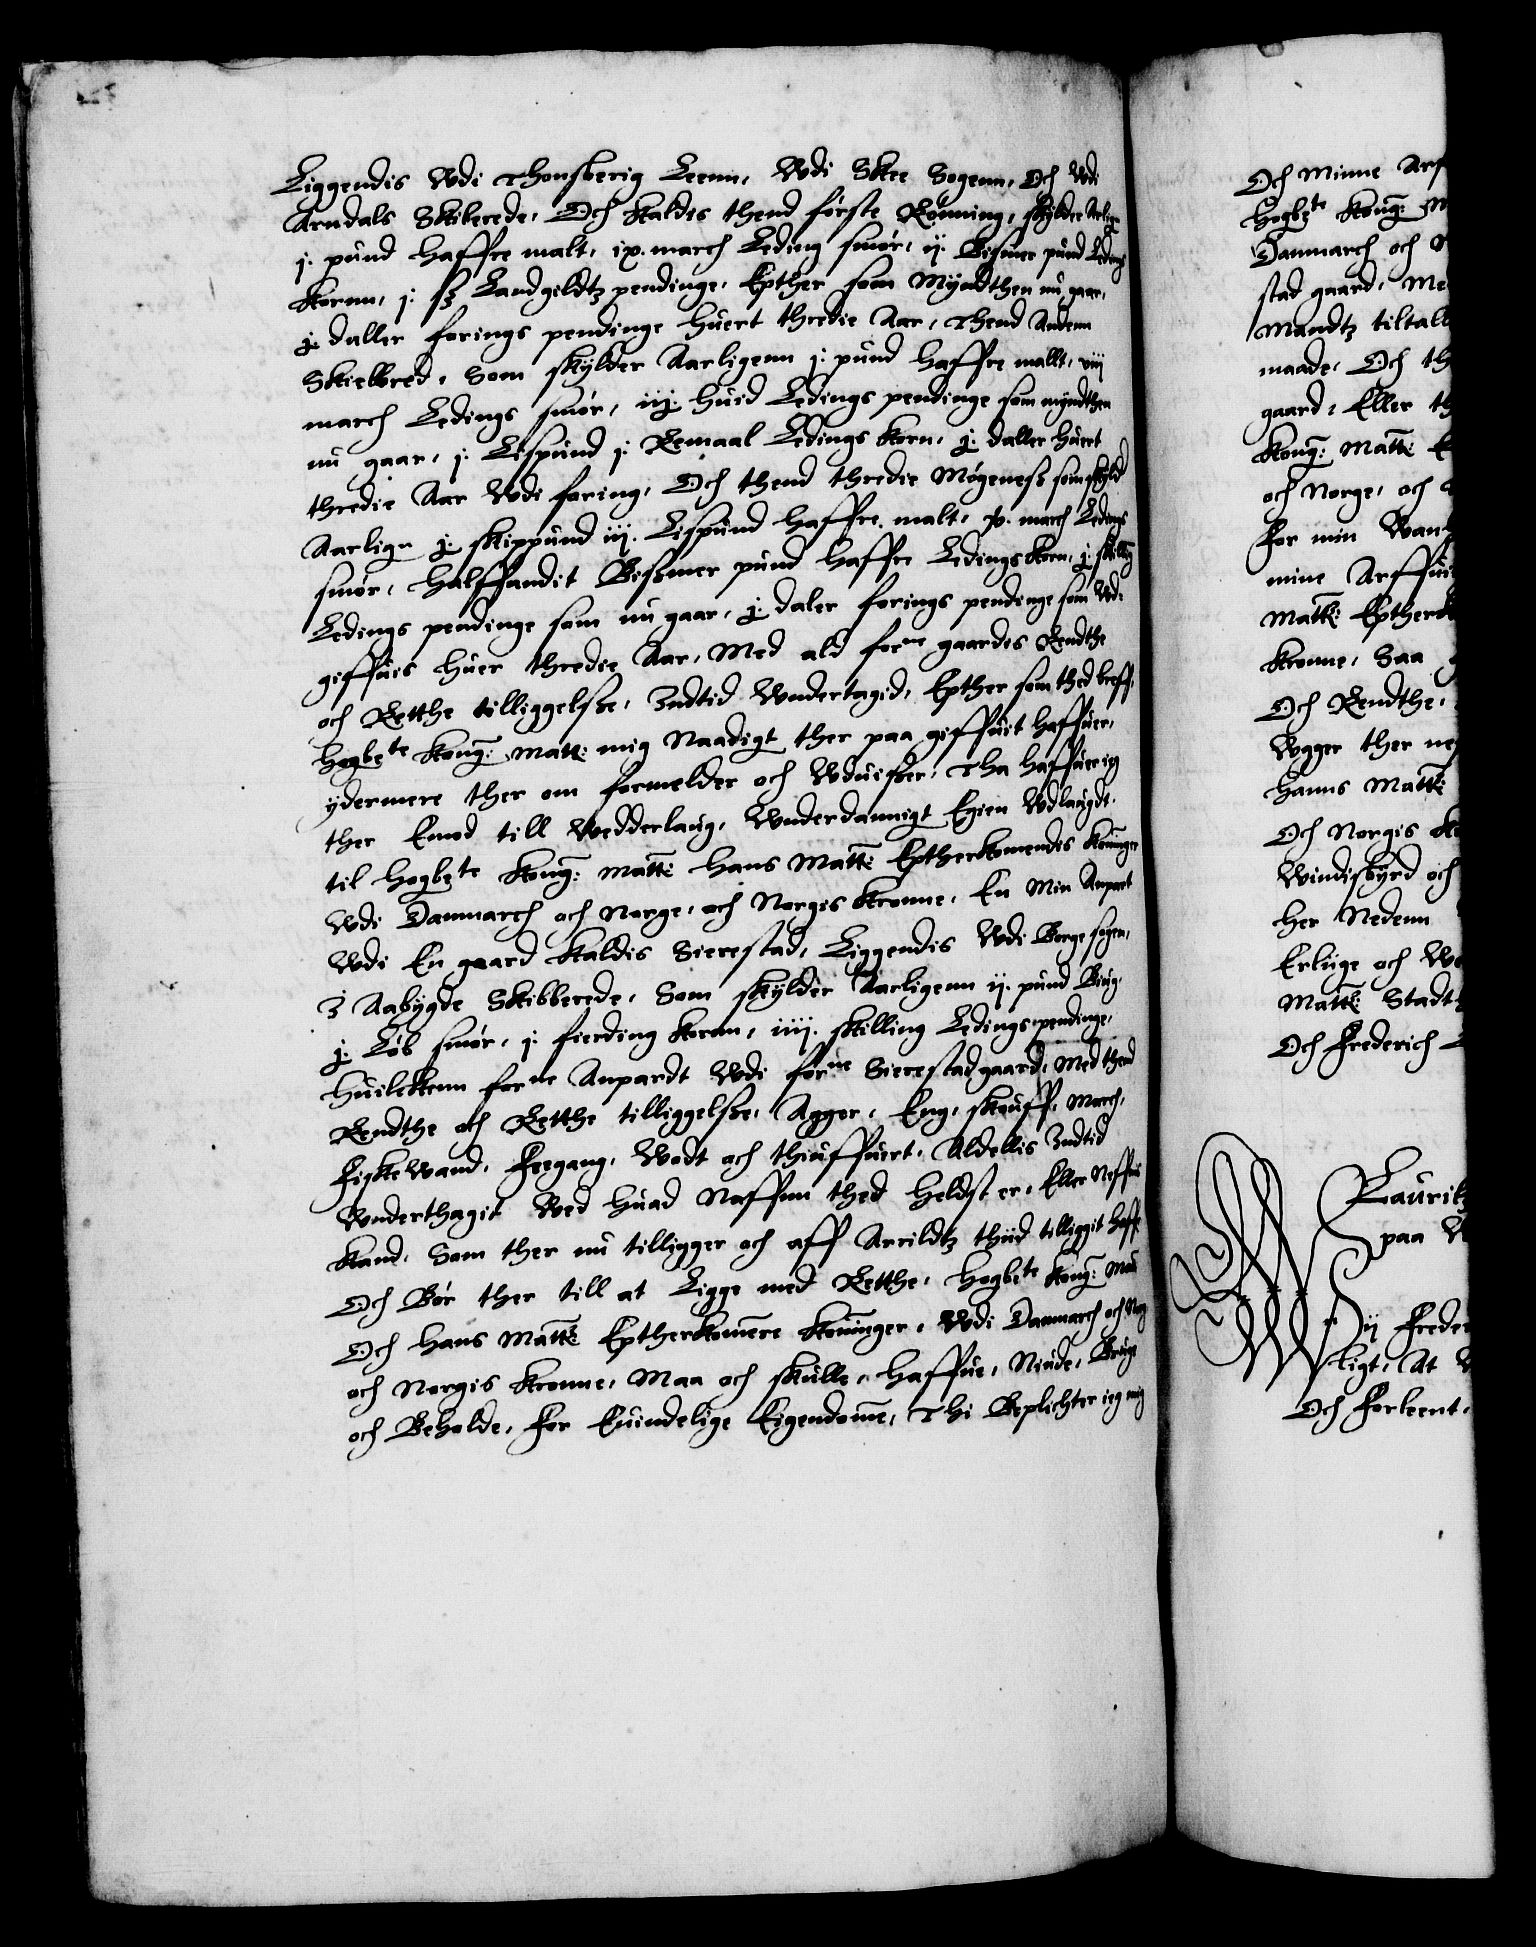 Liggendis Wdi Thonsberig Leenn, Wdi Skee Sogenn, Och Wdi
Arndals Skiberede, Och Kaldis thend første Rønning, skylder Arlige
j. pund Haffre malt, ix. march Leding smør, ij. Bismer pund Ledings
Kornn, j. ß Landgildtz pendinge, Epther som Myndthen nu gaar,
j. daller forings pendinge huert thredie Aar, Thend Anden
Skielbred, Som skylder Aarligenn j. pund Haffre mallt, viij
march Ledings smør, iij. huid Ledings pendinge som myndthen
nu gaar, j. Lispund j. Remaal Ledings Korn, j. daller huert
thredie Aar Wdi foring, Och thend thredie Møgeness som skyld
Aarlige j. skippund iij. Lispund haffre malt, x. march Ledings
smør, halffandit Bissmer pund haffre Ledings Korn, j. skilling
Ledings pendinge som nu gaar, j. daler forings pendinge som Wd-
giffuis huer thredie Aar, Med ald forne gaardes Rendthe
och Retthe tilliggelsze, Indtid Wndertagid, Epther som thed breff,
høgbete Kong: Matt: mig Naadigt ther paa giffuit haffuer,
ydermere ther om formelder och Wduisszer, Tha haffuer ieg
ther Emod till Wedderlaug, Wnderdannigt Egien Wdlaugdt,
til høgbete Kong: Matt: Hans Matt: Eptherkomendis Konninger
Wdi Danmarch och Norge, och Norgis Kronne, En Min Anpart
Wdi En gaard Kaldis Sierestad, Liggendis Wdi Borge sogen,
I Aabygde Skibberede, Som skylder Aarligenn ij. pund Biug
j. Løb smør, j. fierding Kornn, iiij. skilling Ledings pendinge,
huilckenn forne Anpardt Wdi forne Sierestad gaard, Med thend
Rendthe och Retthe tilliggelsze, Agger, Eng, skouff, March,
Fiske Wand, Feegang, Wodt och thiuffuert, Aldellis Indtid
Wnderthagit Wed huad Naffnn thed Heldst er, Eller Neffnis
Kand, Som ther nu tilligger och aff Arrildtz thiid tilliggit haff
Och Bør ther till at Ligge med Retthe, Høgbete Kong: Matt
Och Hans Matt: Eptherkomere Konninger, Wdi Danmarch och Norg
och Norgis Kronne, Maa och skulle, haffue, Niude, Bruge
och Beholde, For Euindelige Eigendome, Thi Beplichter ieg mig
Och Minne Arf
Høgbete Kong: M
Danmarch och N
stad gaard, Me
Mandtz tiltall
maade, Och th
gaard, Eller th
Kong: Matt: E
och Norge, och
For min Wan
mine Arffui
Matt: Epther
Kronne, Saa
Och Rendthe,
Wgger ther ne
Hanns Matt:
Och Norgis K
Windisbyrd och
her Nedenn
Erluge och W
Matt: Stadt
Och Frederich
Lauritz
paa W
Wij Freder
ligt, At W
Och Forleent,